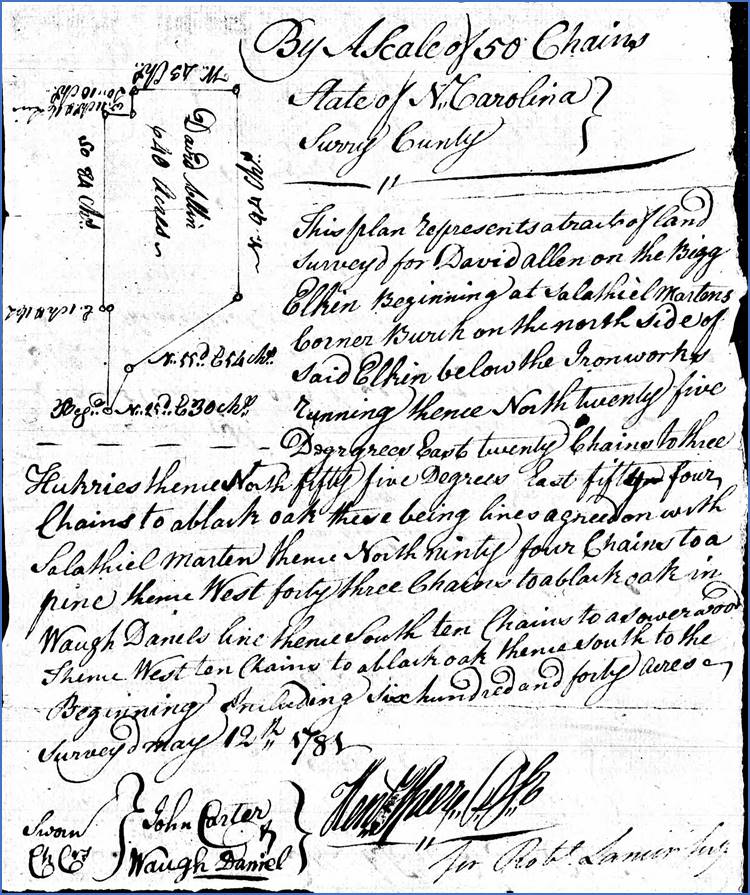 By A Scale of 50 Chains
State of N. Carolina
Surry Cunty
W. 43 Chs.
David Allin
640 Acres
N. 94 Chs.
So 84 Chs.
N. 55d. E 54 chs.
Begg. N. 25d. E 30 chs.
This plan represents a tract of land
Survey'd for David allen on the Bigg
Elken Beginning at Salathiel Martens
Corner Burch on the north side of
said Elkin below the Ironworks
running thence North twenty five
Degrgrees East twenty Chains to three
Hukries thence North fifty five Degrees East fifty four
Chains to a black oak these being lines agreed on with
Salathiel Marten thence North ninty four Chains to a
pine thence West forty three Chains to a black oak in
Waugh Daniels line thence South ten Chains to a sower wood
Thence West ten Chains to a black oak thence south to the
Beginning Including Six hundred and forty Acres
Survey'd may 12th 1781
Sworn
Ch Crs
John Carter &
Waugh Daniel
Henry Speere D.S.
for Robt. Lanier